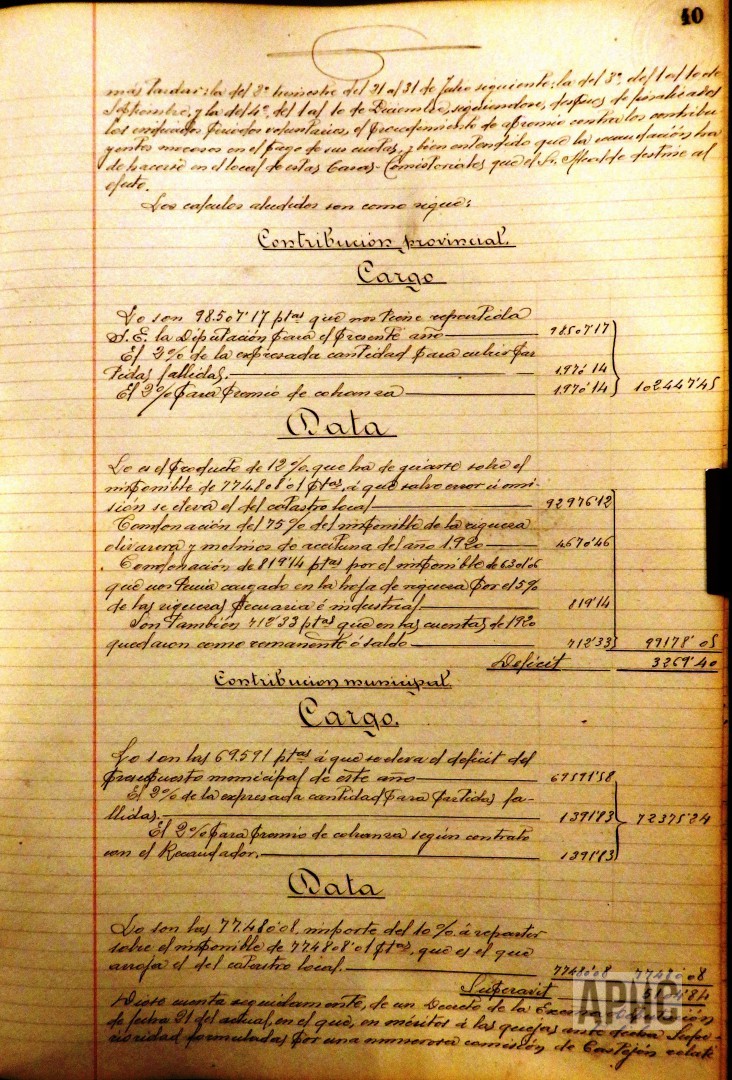 40
más tardar: la del 2º trimestre del 21 al 31 de Julio siguiente; la del 3º, del 1 al 10 de
Septiembre, y la del 4º, del 1 al 10 de Diciembre, siguiéndose, después de finalizados
los indicados periodos voluntarios, el procedimiento de apremio contra los contribu
yentes morosos en el pago de sus cuotas, y bien entendido que la recaudación ha
de hacerse en el local de estas Casas-Consistoriales que el Sr. Alcalde destine al
efecto.
Los calculos aludidos son como sigue:
Contribución provincial.
Cargo
Lo son 98.507'17 ptas que nos tiene repartida
S. E. la Diputación para el presente año 98507'17
El 2% de la expresada cantidad para cubrir par
tidas fallidas. 1.970'14
El 2% para premio de cobranza 1.970'14 102447'45
Data
Lo es el producto de 12%. que ha de girarse sobre el
imponible de 774808'01 ptas. á que salvo error ú omi-
sión se eleva el del catastro local 92976'12
Condonación del 75% del imponible de la riqueza
olivarera y molinos de aceituna del año 1.920 4670'46
Condonación de 819'14 ptas por el imponible de
que nos tenia cargado en la hoja de riqueza por el 5%
de las riquezas pecuaria é industrial 819'14
Son también 712'33 ptas que en las cuentas de 1920
quedaron como remanente ó saldo 712'33 99178'05
Deficit 3269'40
Contribucion municipal.
Cargo.
Lo son las 69.591 ptas á que se eleva el deficit del
presupuesto municipal de este año 69591'58
El 2% de la expresada cantidad para partidas fa-
llidas. 1391'83 72375'24
El 2% para premio de cobranza según contrato
con el Recaudador. 1391'83
Data
Lo son las 77.480'08. importe del 10%. á repartir
sobre el imponible de 774808'01 ptas. que es el que
arroja el del catastro local. 77480'08 77480'08
Superavit 5104'84
Diose cuenta seguidamente, de un Decreto de la Excma. Diputación
de fecha 21 del actual, en el que, en méritos á las quejas ante dicha Supe-
rioridad formuladas por una numerosa comisión de Castejón relati
APMC